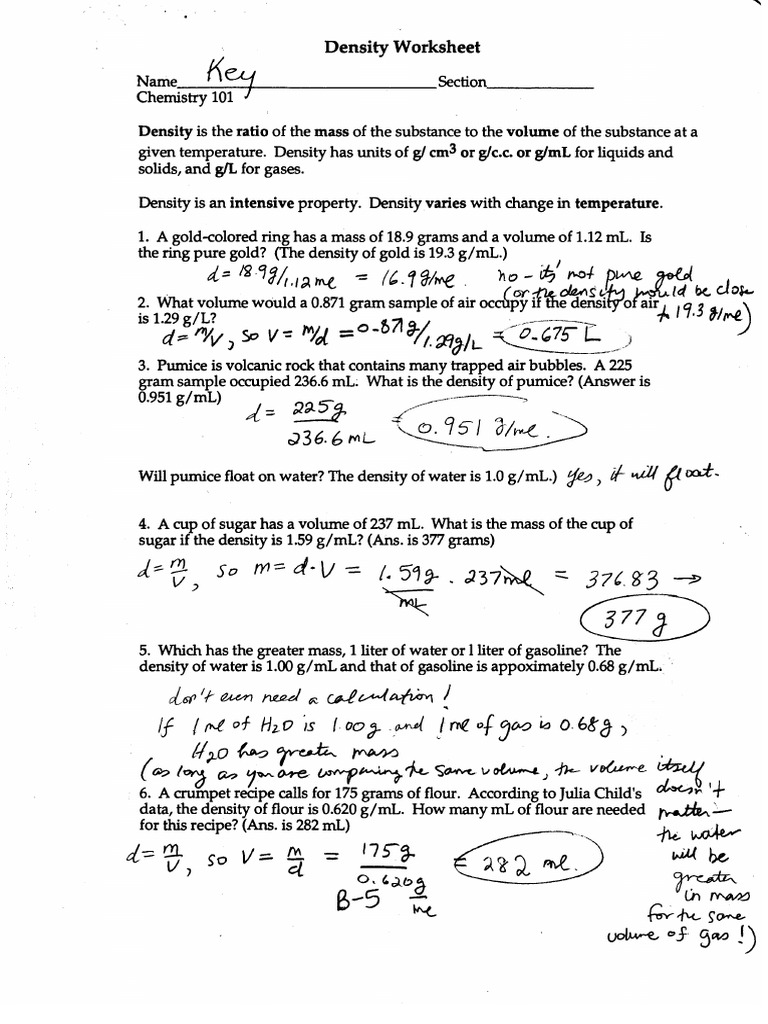 Density Worksheet
Name Key Section
Chemistry 101
Density is the ratio of the mass of the substance to the volume of the substance at a
given temperature. Density has units of g/ cm3 or g/c.c. or g/mL for liquids and
solids, and g/L for gases.
Density is an intensive property. Density varies with change in temperature.
1. A gold-colored ring has a mass of 18.9 grams and a volume of 1.12 mL. Is
the ring pure gold? (The density of gold is 19.3 g/mL.)
d= 18.9g/1.12 mL = 16.9g/mL no - its' not pure gold
(or the density would be close
2. What volume would a 0.871 gram sample of air occupy if the density of air
to 19.3 g/mL)
is 1.29 g/L?
d= m/V, so V = m/d = 0.871g/1.29g/L = 0.675 L
3. Pumice is volcanic rock that contains many trapped air bubbles. A 225
gram sample occupied 236.6 mL. What is the density of pumice? (Answer is
0.951 g/mL)
d= 225g/236.6 mL = 0.951 g/mL.
Will pumice float on water? The density of water is 1.0 g/mL.) Yes, it will float.
4. A cup of sugar has a volume of 237 mL. What is the mass of the cup of
sugar if the density is 1.59 g/mL? (Ans. is 377 grams)
d= m/V, so m= d·V = 1.59g/mL . 237mL = 376.83 →
377 g
5. Which has the greater mass, 1 liter of water or l liter of gasoline? The
density of water is 1.00 g/mL and that of gasoline is appoximately 0.68 g/mL.
don't even need a calculation!
If 1 mL of H2O is 1.00g and 1 mL of gas is 0.68g,
H2O has greater mass
(as long as you are comparing the same volume, the volume itself
doesn't
6. A crumpet recipe calls for 175 grams of flour. According to Julia Child's
data, the density of flour is 0.620 g/mL. How many mL of flour are needed
matter—
for this recipe? (Ans. is 282 mL)
the water
d= m/V, so V= m/d = 175g/0.620g/mL = 282 mL.
will be
greater
B-5
in mass
for the same
volume of gas!)